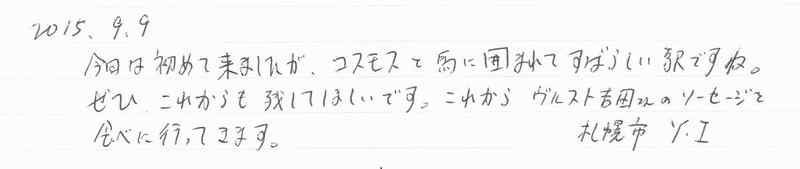 2015. 9. 9
今日は初めて来ましたが、コスモスと馬に囲まれてすばらしい駅ですね。
ぜひ これからも 残してほしいです。これから ヴルスト吉田さんのソーセージを
食べに行ってきます。 札幌市 Y.I